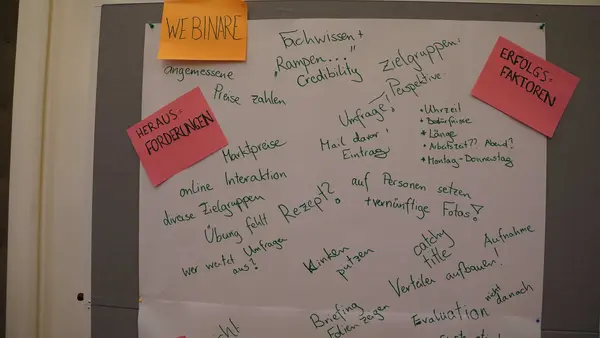 WEBINARE
Fachwissen +
"Rampen..."
Credibility
angemessene
Preise zahlen
HERAUS-
FORDERUNGEN
ERFOLGS-
FAKTOREN
Zielgruppen:
Perspektive:
• Uhrzeit
• Bedürfnisse
• Länge
• Arbeitszeit?? Abend?
• Montag - Donnerstag
Umfrage!
Mail davor!
Eintrag
Marktpreise
online Interaktion
diverse Zielgruppen
Übung fehlt
Rezept?
wer wertet Umfragen
aus?
auf Personen setzen
+ vernünftige Fotos!
Klinken
putzen
catchy
title
Aufnahme
Verteiler aufbauen!
Briefing
Folien zeigen
Evaluation
nicht
danach